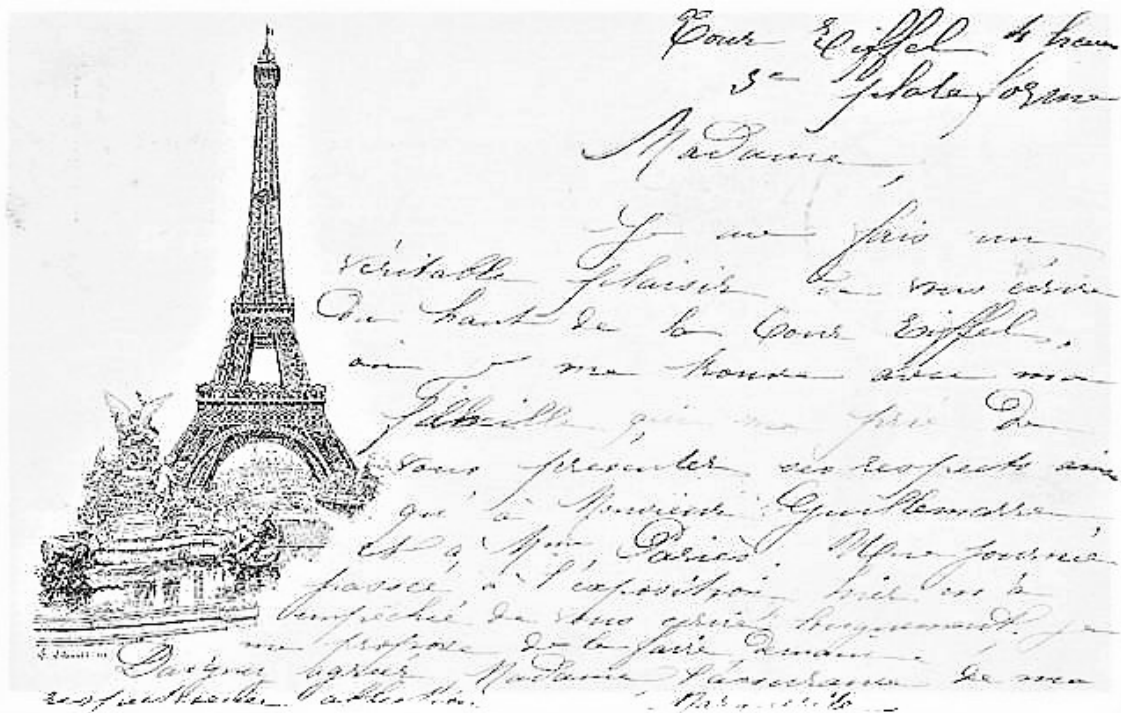 Tour Eiffel 4 heures
3e plateforme
Madame,
Je me fais un
véritable plaisir de vous écrire
du haut de la Tour Eiffel,
où je me trouve avec ma
qui me prie de
vous présenter ses respects ainsi
qu'à Monsieur Guillemarre
et à Mme Pariès. Une journée
passée à l'exposition hier m'a
empêchée de vous écrire longuement, je
me propose de le faire demain.
Daignez agréer Madame l'assurance de ma
respectueuse affection. Marguerite